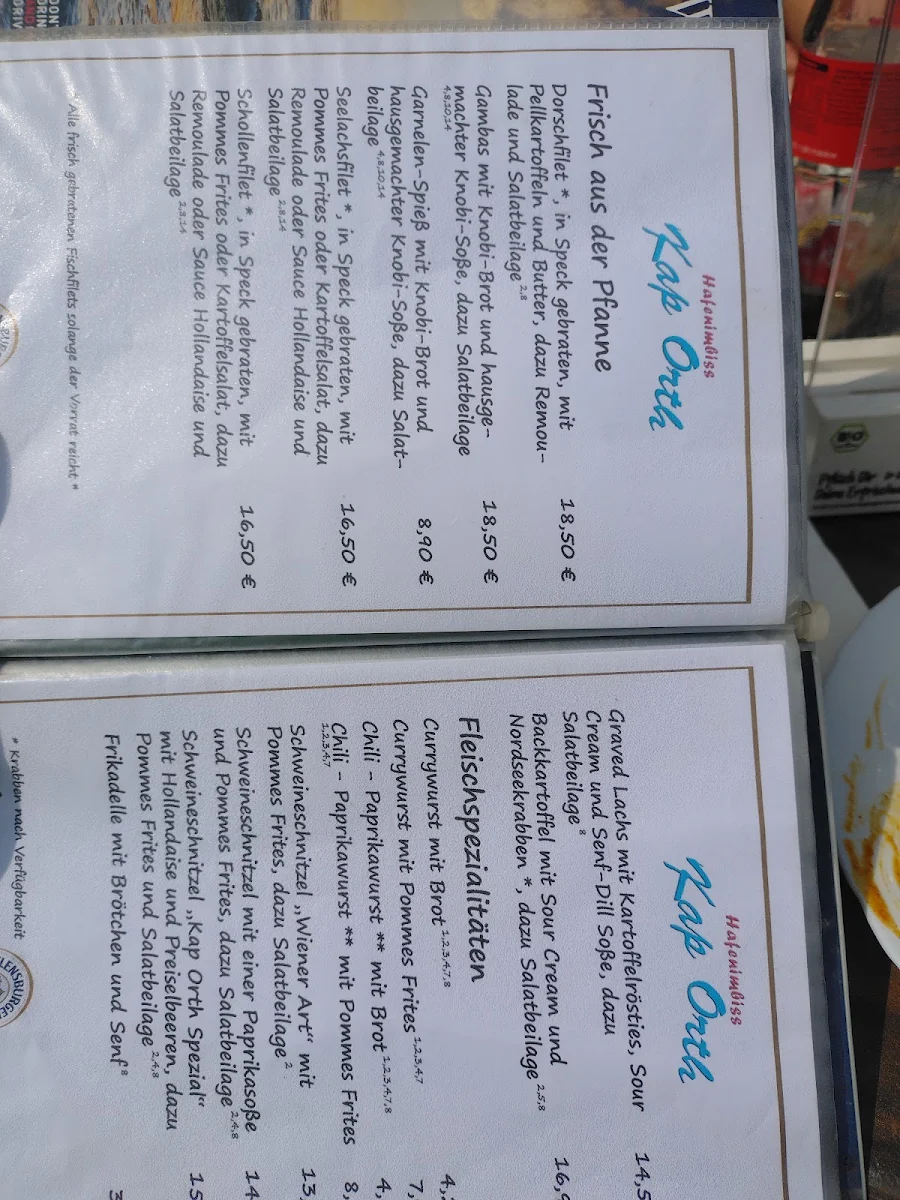 Hafenimbiss
Kap Orth
Frisch aus der Pfanne
Dorschfilet *, in Speck gebraten, mit
Pellkartoffeln und Butter, dazu Remou-
lade und Salatbeilage 2,8 18,50 €
Gambas mit Knobi-Brot und hausge-
machter Knobi-Soße, dazu Salatbeilage 18,50 €
4,8,10,14
Garnelen-Spieß mit Knobi-Brot und
hausgemachter Knobi-Soße, dazu Salat- 8,90 €
beilage 4,8,10,14
Seelachsfilet *, in Speck gebraten, mit 16,50 €
Pommes Frites oder Kartoffelsalat, dazu
Remoulade oder Sauce Hollandaise und
Salatbeilage 2,8,14
Schollenfilet *, in Speck gebraten, mit 16,50 €
Pommes Frites oder Kartoffelsalat, dazu
Remoulade oder Sauce Hollandaise und
Salatbeilage 2,8,14
Alle frisch gebratenen Fischfilets solange der Vorrat reicht *
Hafenimbiss
Kap Orth
Graved Lachs mit Kartoffelrösties, Sour 14,5
Cream und Senf-Dill Soße, dazu
Salatbeilage 8
Backkartoffel mit Sour Cream und 16,9
Nordseekrabben *, dazu Salatbeilage 2,5,8
Fleischspezialitäten
Currywurst mit Brot 1,2,3,4,7,8 4,
Currywurst mit Pommes Frites 1,2,3,4,7 7,
Chili - Paprikawurst ** mit Brot 1,2,3,4,7,8 4,
Chili - Paprikawurst ** mit Pommes Frites 8,
1,2,3,4,7
Schweineschnitzel „Wiener Art" mit 13,
Pommes Frites, dazu Salatbeilage 2
Schweineschnitzel mit einer Paprikasoße 14
und Pommes Frites, dazu Salatbeilage 2,4,8
Schweineschnitzel „Kap Orth Spezial" 15
mit Hollandaise und Preiselbeeren, dazu
Pommes Frites und Salatbeilage 2,4,8
Frikadelle mit Brötchen und Senf 8 3
* Krabben nach Verfügbarkeit
BIO